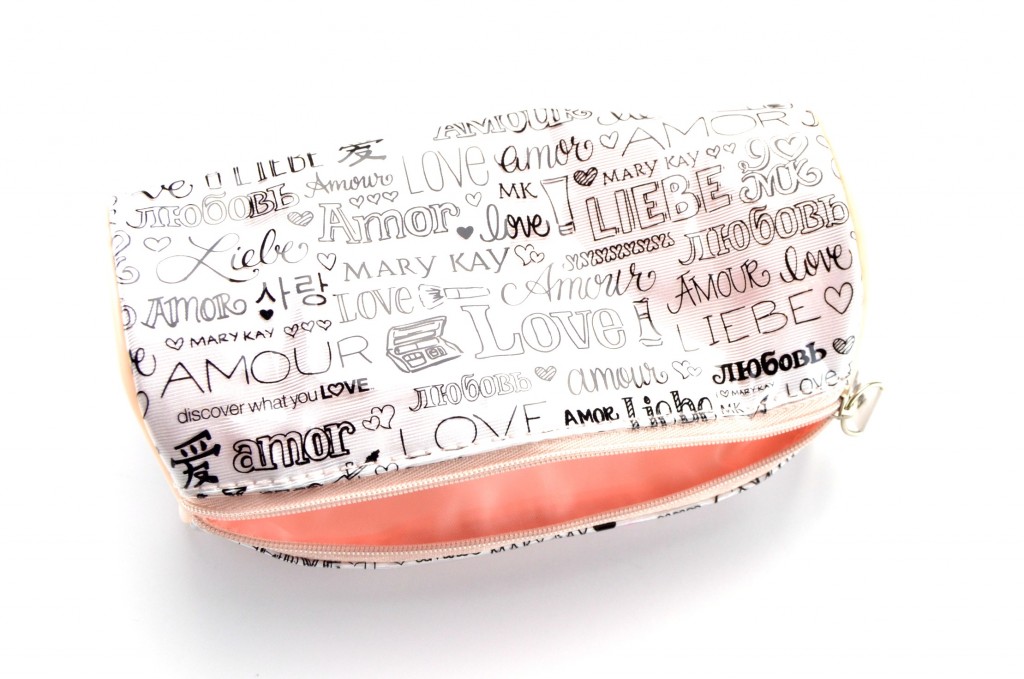 AMOUR AMOR
LIEBE 爱 Amour LOVE amor MARY KAY
ЛЮБОВЬ Amor MK love LIEBE MK
Liebe MARY KAY ЛЮБОВЬ
AMOR 사랑 LOVE Amour AMOUR love
MARY KAY Love LIEBE
AMOUR
discover what you LOVE ЛЮБОВЬ amour ЛЮБОВЬ
MARY KAY
爱 amor LOVE AMOR Liebe MK LOVE
MARY KAY